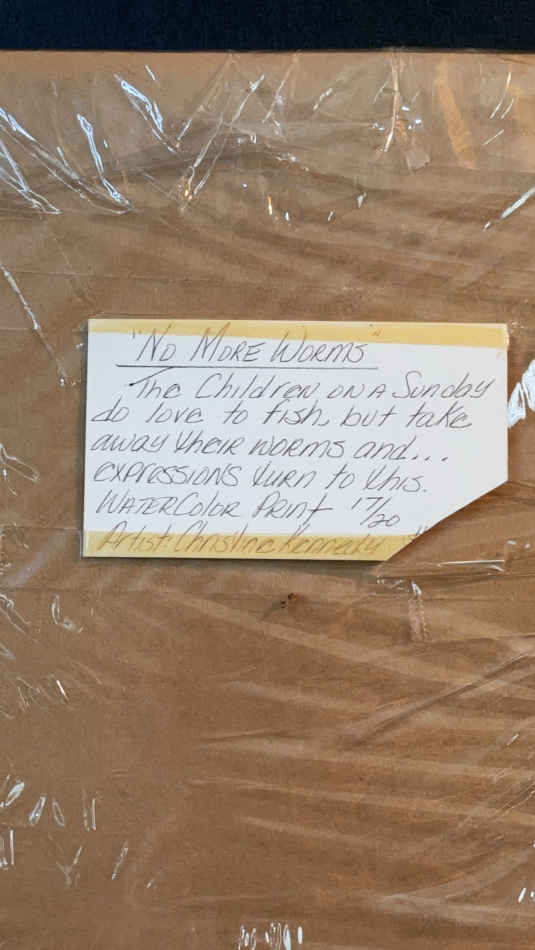 "No More Worms"
The Children on a Sunday
do love to fish, but take
away their worms and...
expressions turn to this.
WaterColor Print 17/20
Artist: Christine Kennedy